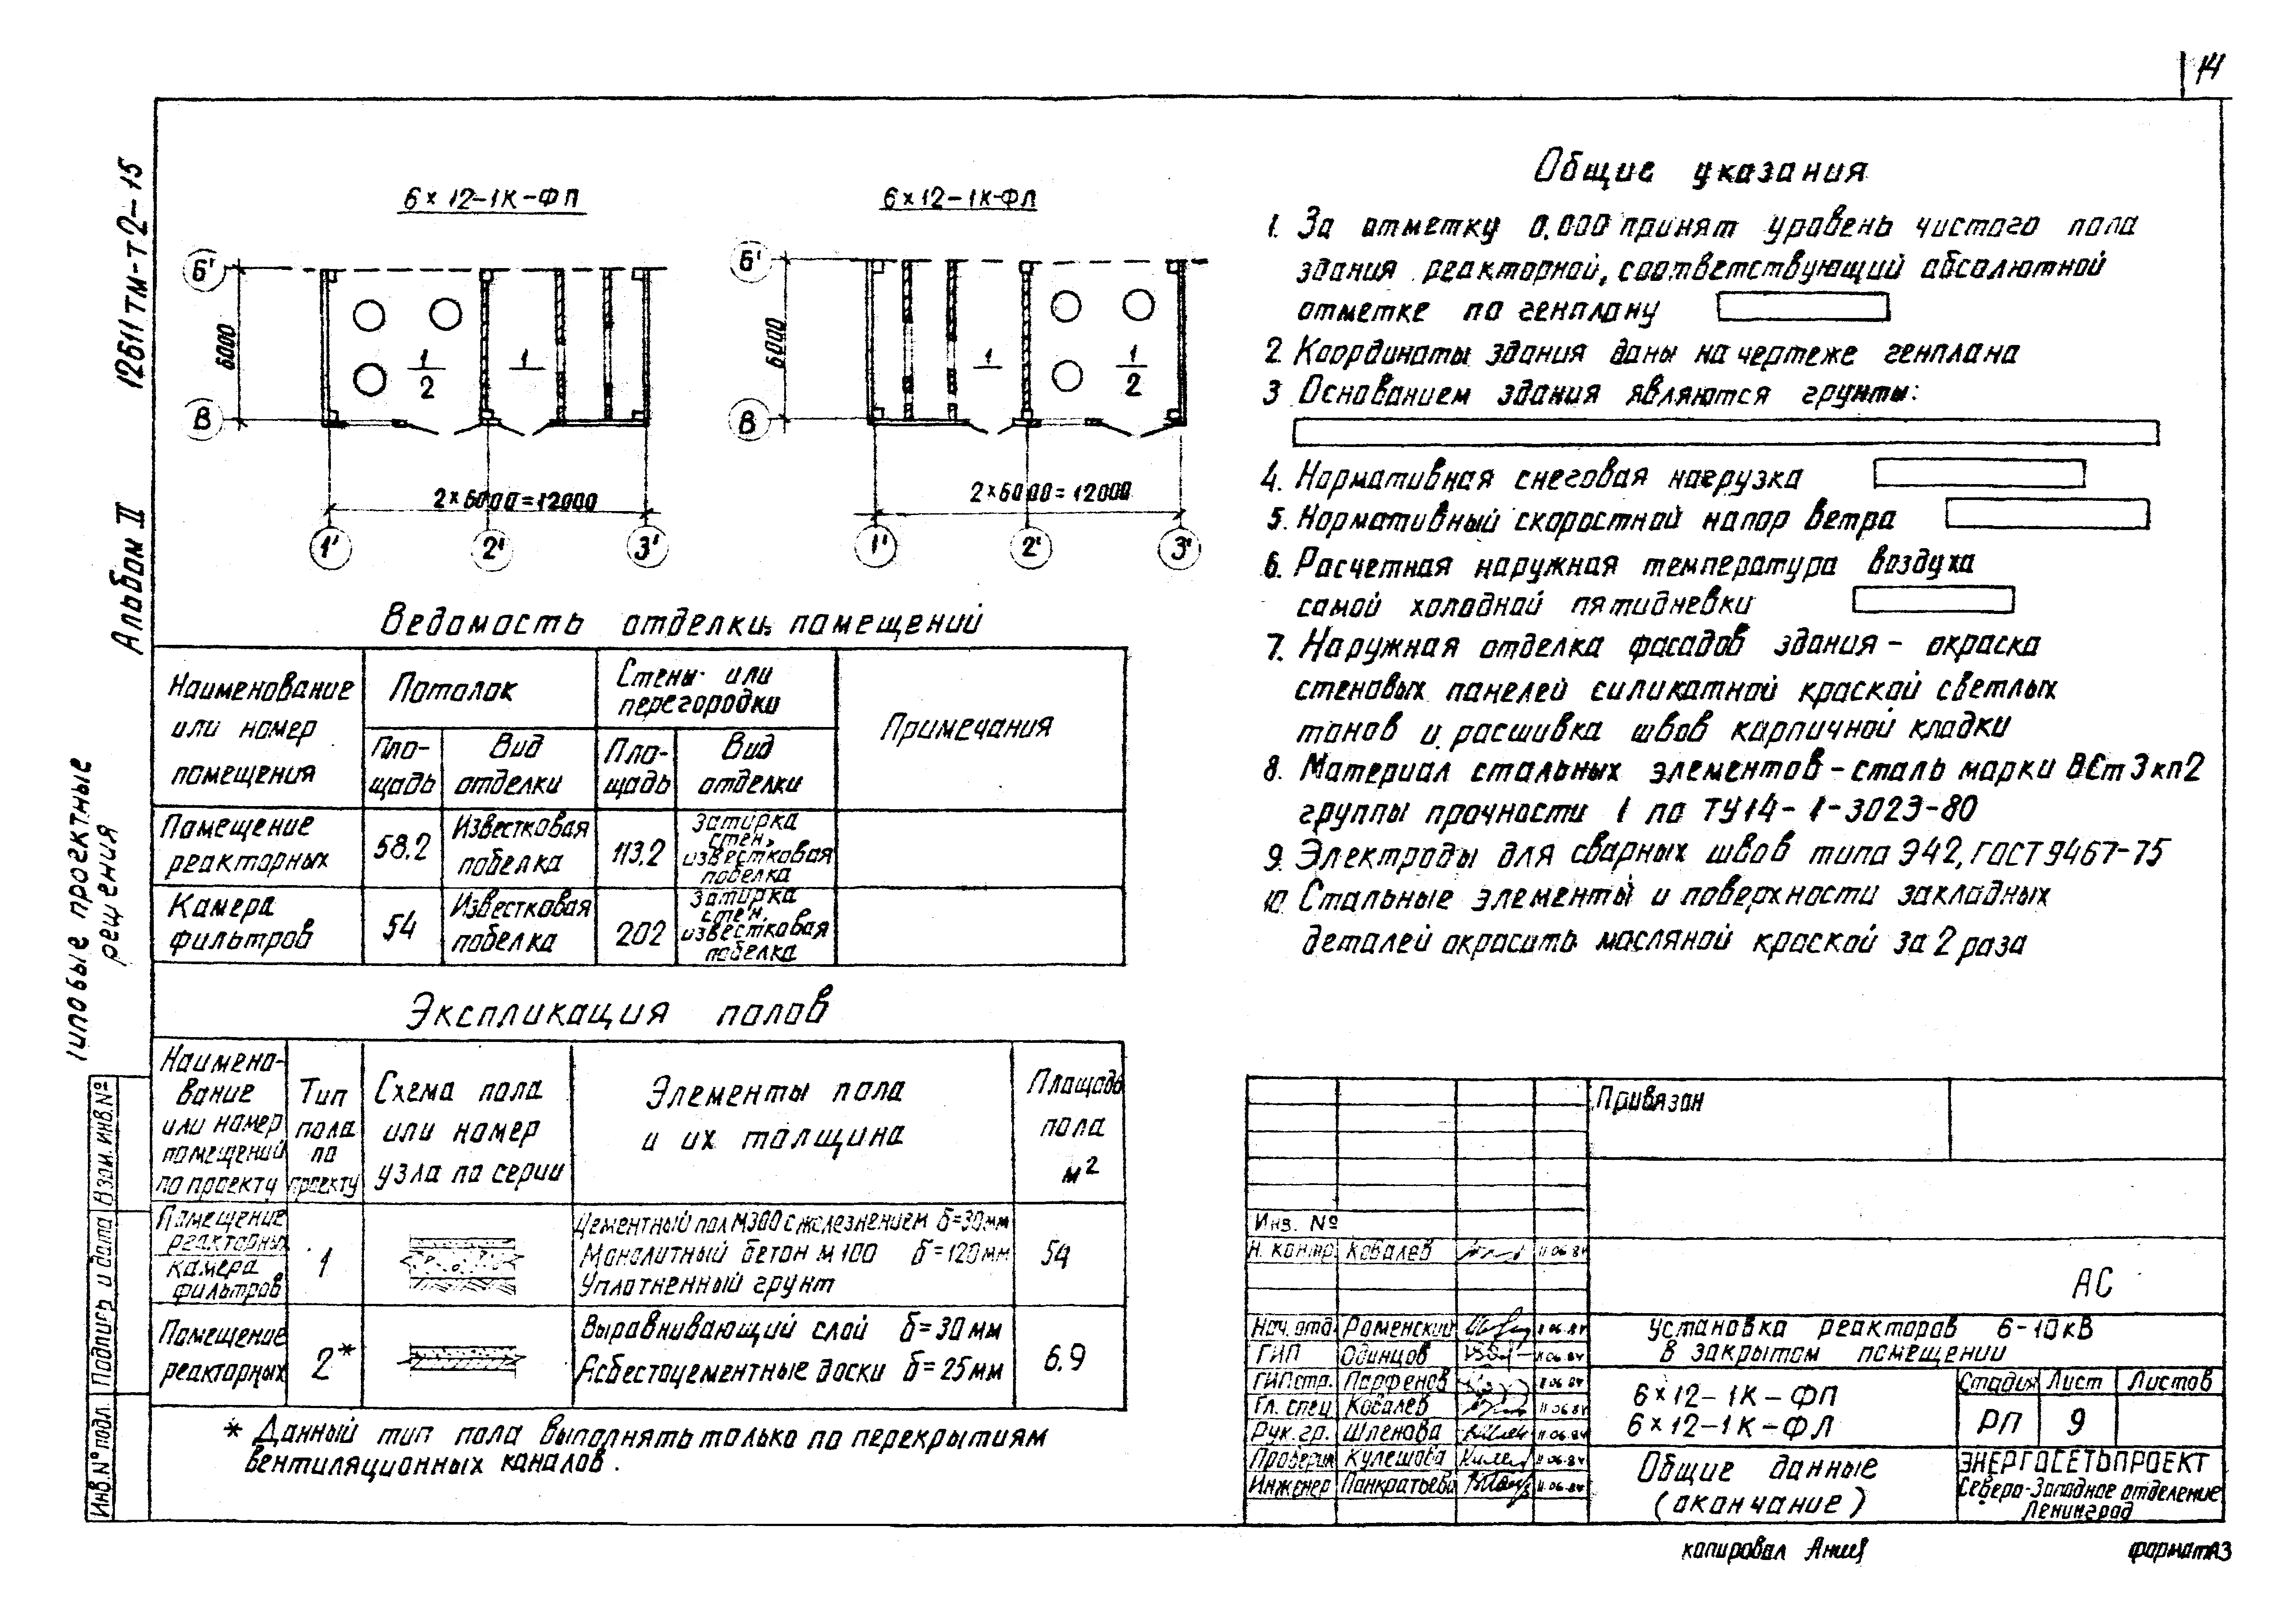 14
12611тм-т2-15
Альбом II
Типовые проектные
решения
Взам. инв.№
Подпись и дата
Инв.№ подл.
6×12-1К-ФП
Б'
В
6000
1
2
1
2×6000=12000
1'
2'
3'
6×12-1К-ФЛ
Б'
В
6000
1
1
2
2×6000=12000
1'
2'
3'
Ведомость отделки помещений
Наименование
или номер
помещения
Потолок
Стены или
перегородки
Примечания
Пло-
щадь
Вид
отделки
Пло-
щадь
Вид
отделки
Помещение
реакторных
58.2
Известковая
побелка
113.2
Затирка
стен,
известковая
побелка
Камера
фильтров
54
Известковая
побелка
202
Затирка
стен,
известковая
побелка
Экспликация полов
Наимено-
вание
или номер
помещений
по проекту
Тип
пола
по
проекту
Схема пола
или номер
узла по серии
Элементы пола
и их толщина
Площадь
пола
м2
Помещение
реакторных
Камера
фильтров
1
Цементный пол М300 с железнением δ=30мм
Монолитный бетон М100 δ=120мм
Уплотненный грунт
54
Помещение
реакторных
2*
Выравнивающий слой δ=30мм
Асбестоцементные доски δ=25мм
6.9
* Данный тип пола выполнять только по перекрытиям
вентиляционных каналов.
Общие указания
1. За отметку 0.000 принят уровень чистого пола
здания реакторной, соответствующий абсолютной
отметке по генплану
2. Координаты здания даны на чертеже генплана
3 Основанием здания являются грунты:
4. Нормативная снеговая нагрузка
5. Нормативный скоростной напор ветра
6. Расчетная наружная температура воздуха
самой холодной пятидневки
7. Наружная отделка фасадов здания - окраска
стеновых панелей силикатной краской светлых
тонов и расшивка швов кирпичной кладки
8. Материал стальных элементов - сталь марки ВСт3кп2
группы прочности 1 по ТУ14-1-3023-80
9. Электроды для сварных швов типа Э42, ГОСТ 9467-75
10. Стальные элементы и поверхности закладных
деталей окрасить масляной краской за 2 раза
Привязан
Инв. №
Н. контр. Ковалев 11.06.84
АС
Нач. отд. Роменский 11.06.84
ГИП Одинцов 11.06.84
ГИП стр. Парфенов 11.06.84
Гл. спец. Ковалев 11.06.84
Рук. гр. Шленова 11.06.84
Проверил Кулешова 11.06.84
Инженер Панкратьева 11.06.84
Установка реакторов 6-10кВ
в закрытом помещении
6×12-1К-ФП
6×12-1К-ФЛ
Стадия Лист Листов
РП 9
Общие данные
(окончание)
ЭНЕРГОСЕТЬПРОЕКТ
Северо-Западное отделение
Ленинград
копировал
формат А3